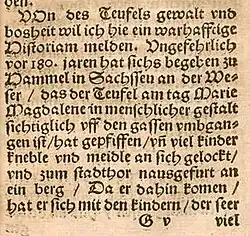 den.
VOn des Teufels gewalt vnd
bosheit wil ich hie ein warhafftige
Historiam melden. Vngefehrlich
vor 180. jaren hat sichs begeben zu
Hammel in Sachssen an der We-
ser / das der Teufel am tag Marie
Magdalene in menschlicher gestalt
sichtiglich vff den gassen vmbgan-
gen ist / hat gepfiffen / vñ viel kinder
kneble vnd meidle an sich gelockt /
vnd zum stadthor nausgefürt an
ein berg / Da er dahin komen /
hat er sich mit den kindern / der seer
G v viel